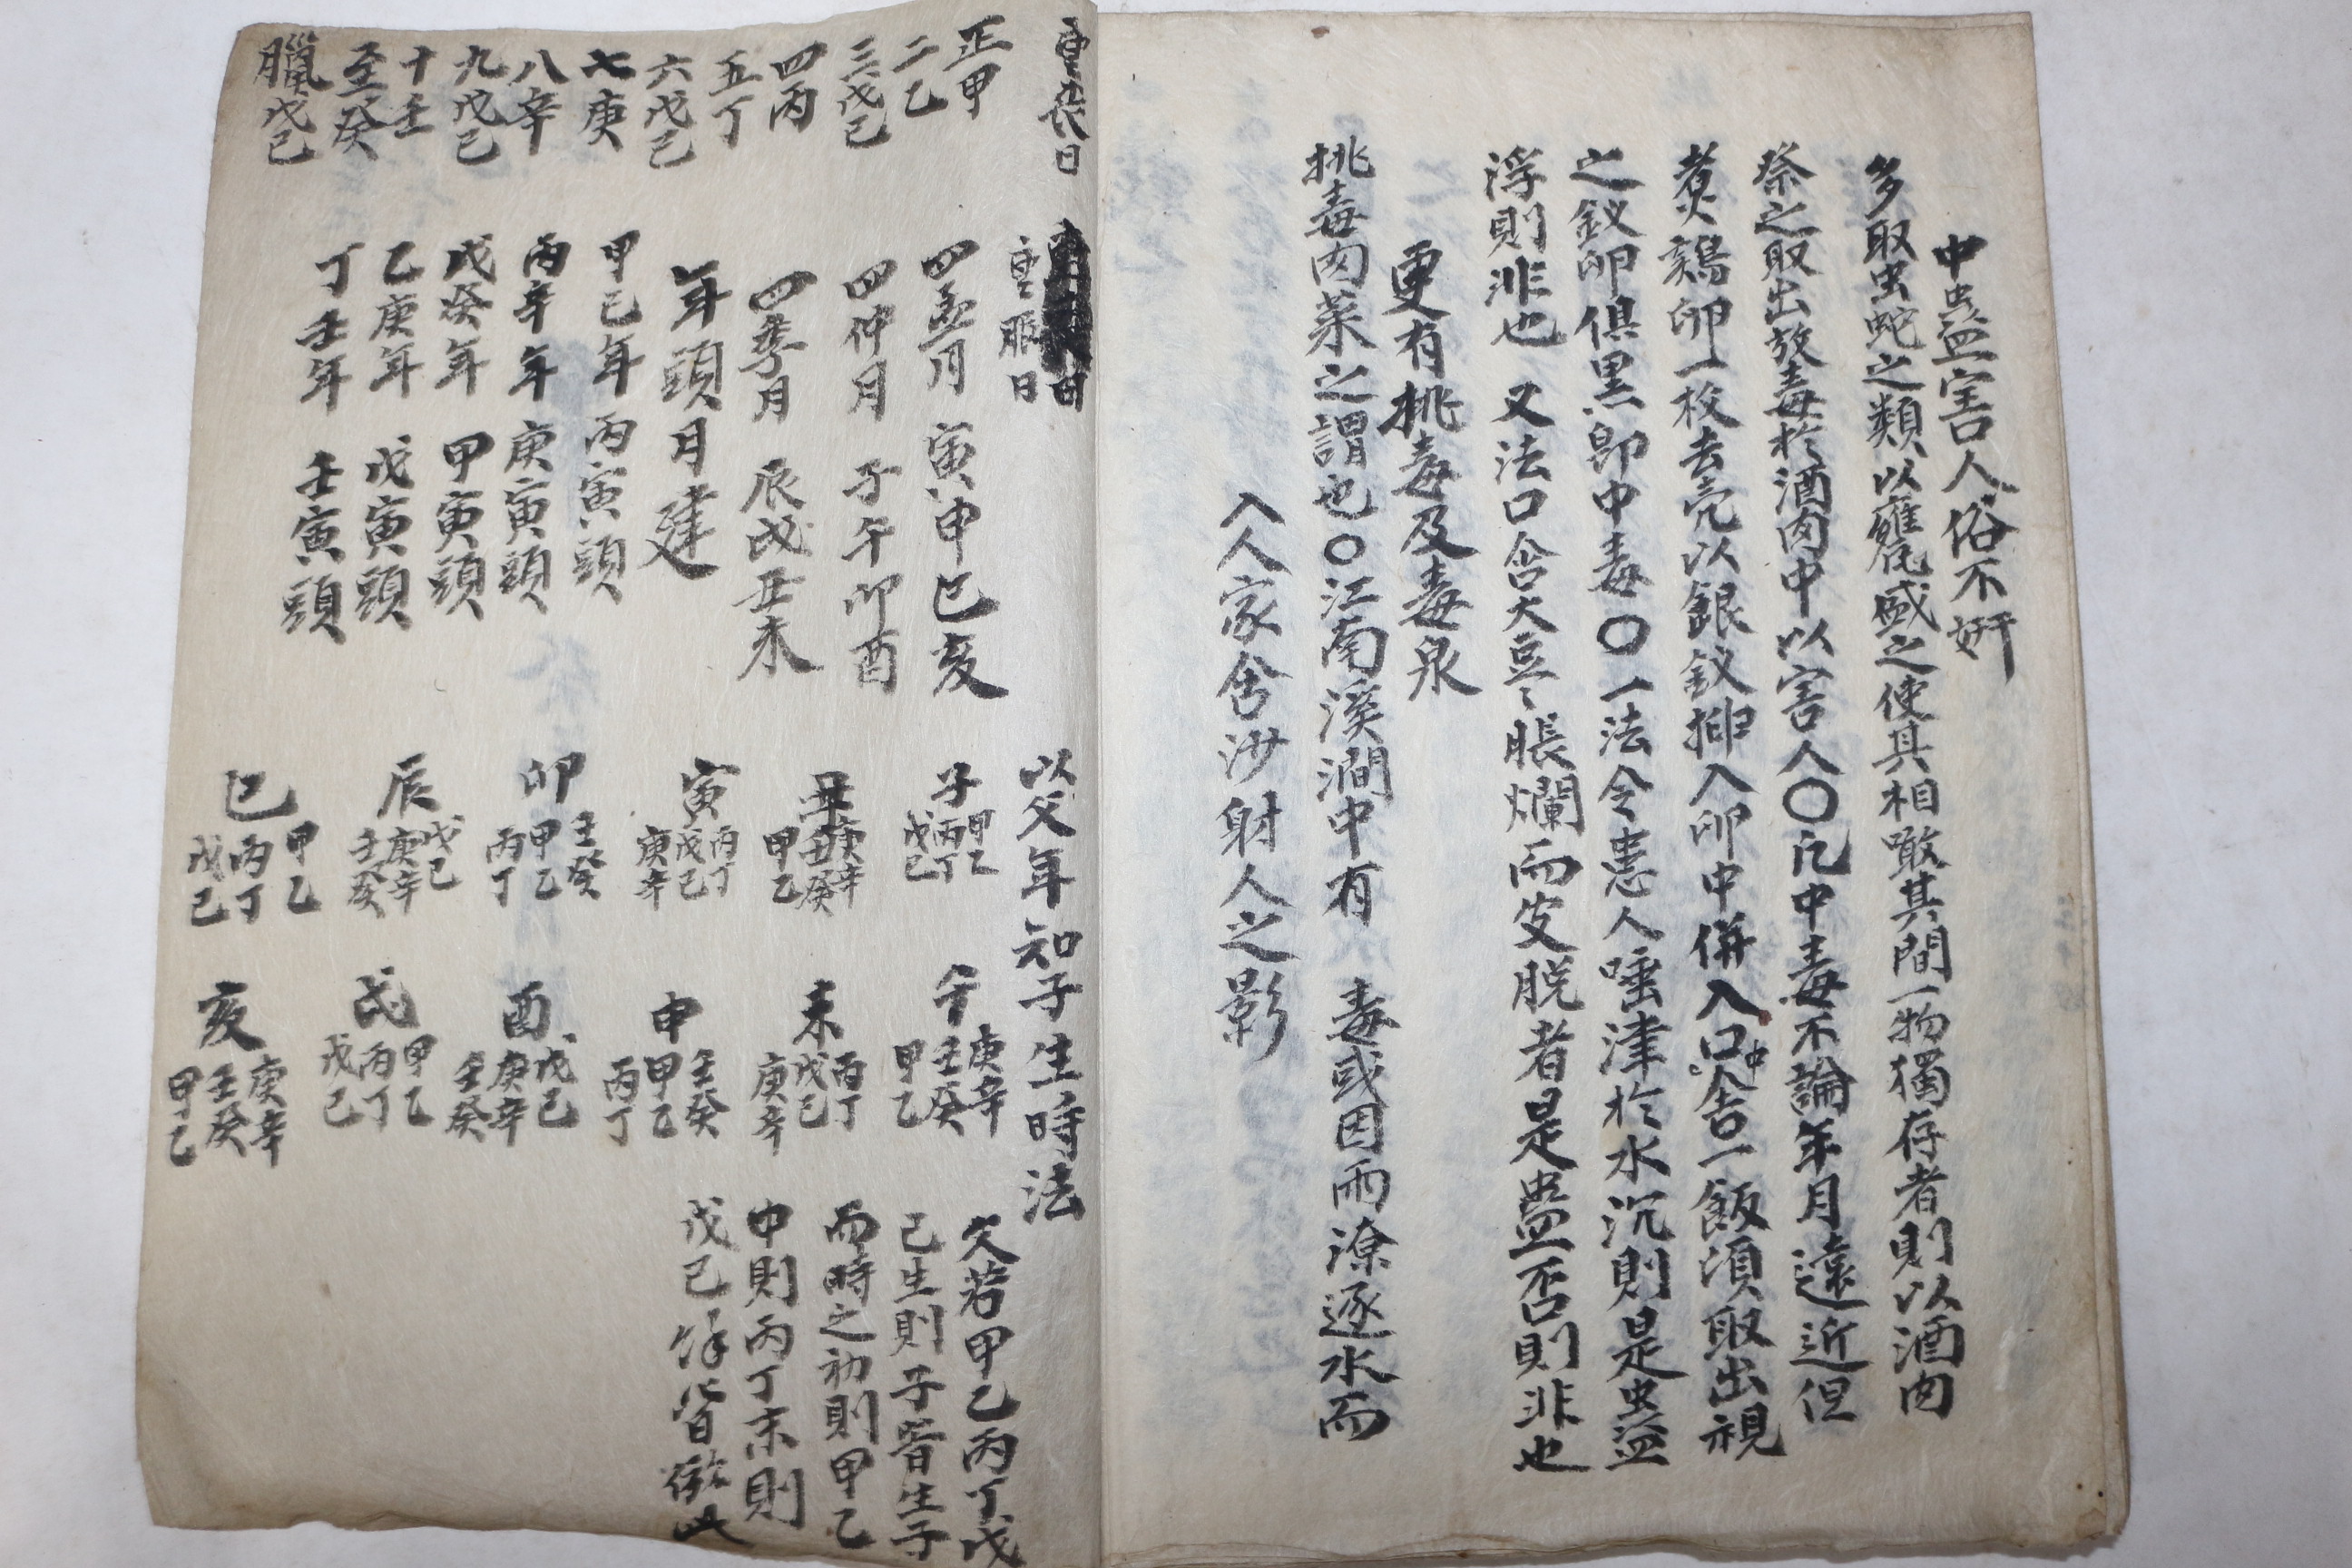 中蠱害人俗不奸
多取虫蛇之類以甕盛之使其相噉其間一物獨存者則以酒肉
祭之取出放毒於酒肉中以害人〇凡中毒不論年月遠近但
煮鷄卵一枚去壳以銀釵揷入卵中併入口中含一飯湏取出視
之釵卵俱黑卽中毒〇一法令患人唾津於水沉則是蠱
浮則非也 又法口含大豆〻脹爛而皮脫者是蠱否則非也
更有挑毒及毒泉
挑毒肉菜之謂也〇江南溪澗中有 毒或因雨潦逐水而
入人家含沙射人之影
重喪日
正甲
二乙
三戊己
四丙
五丁
六戊己
七庚
八辛
九戊己
十壬
至癸
臘戊己
重服日
四孟月 寅申巳亥
四仲月 子午卯酉
四季月 辰戌丑未
年頭月建
甲己年 丙寅頭
丙辛年 庚寅頭
戊癸年 甲寅頭
乙庚年 戊寅頭
丁壬年 壬寅頭
以父年知子生時法
子 甲乙 丙丁 戊己
丑 庚辛 壬癸 甲乙
寅 丙丁 戊己 庚辛
卯 壬癸 甲乙 丙丁
辰 戊己 庚辛 壬癸
巳 甲乙 丙丁 戊己
午 庚辛 壬癸 甲乙
未 丙丁 戊己 庚辛
申 壬癸 甲乙 丙丁
酉 戊己 庚辛 壬癸
戌 甲乙 丙丁 戊己
亥 庚辛 壬癸 甲乙
父若甲乙丙丁戊
己生則子皆生子
而時之初則甲乙
中則丙丁末則
戊己餘皆倣此